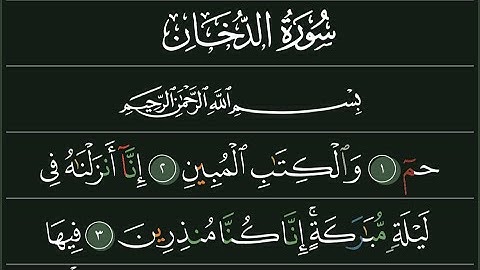 سُورَةُ الدُّخَانِ
بِسْمِ ٱللَّهِ ٱلرَّحْمَٰنِ ٱلرَّحِيمِ
حمٓ ١ وَٱلْكِتَٰبِ ٱلْمُبِينِ ٢ إِنَّآ أَنزَلْنَٰهُ فِى
لَيْلَةٍ مُّبَٰرَكَةٍ ۚ إِنَّا كُنَّا مُنذِرِينَ ٣ فِيهَا